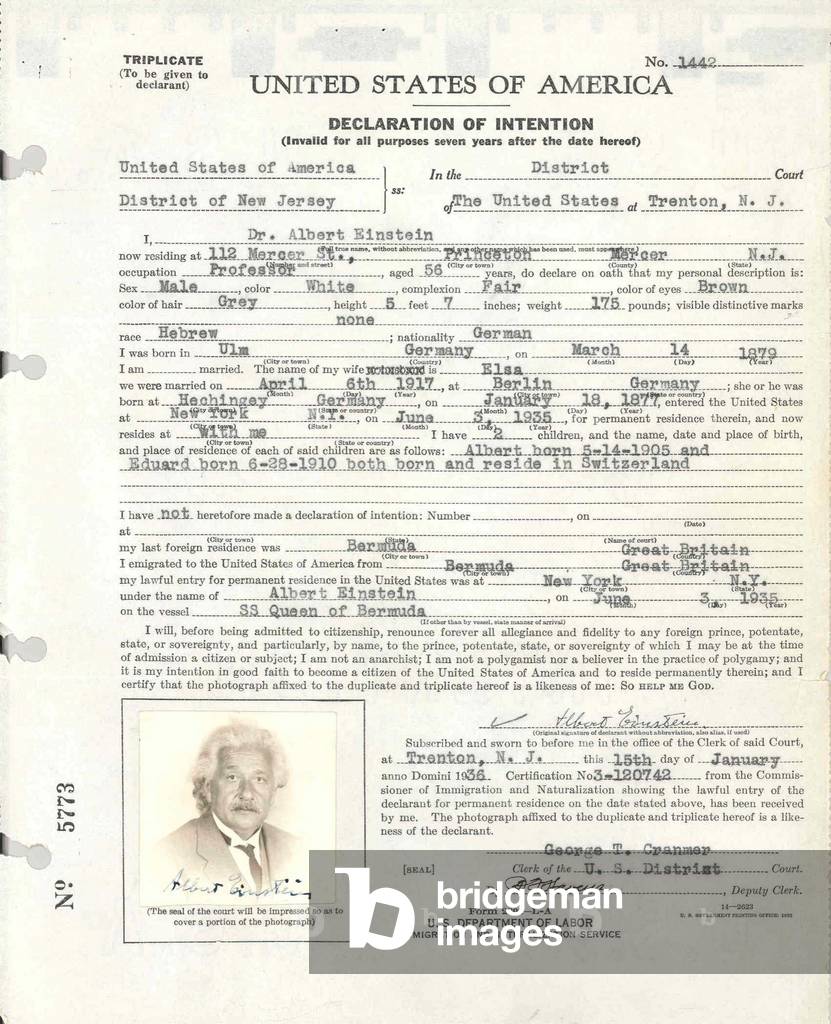 TRIPLICATE
(To be given to
declarant)
No. 1442
UNITED STATES OF AMERICA
DECLARATION OF INTENTION
(Invalid for all purposes seven years after the date hereof)
United States of America
District of New Jersey
ss:
In the District Court
of The United States at Trenton, N. J.
I, Dr. Albert Einstein
(Full true name, without abbreviation, and any other name which has been used, must appear here)
now residing at 112 Mercer St., Princeton Mercer N.J.
(Number and street) (City or town) (County) (State)
occupation Professor, aged 56 years, do declare on oath that my personal description is:
Sex Male, color White, complexion Fair, color of eyes Brown
color of hair Grey, height 5 feet 7 inches; weight 175 pounds; visible distinctive marks
none
race Hebrew; nationality German
I was born in Ulm Germany, on March 14 1879
(City or town) (Country) (Month) (Day) (Year)
I am married. The name of my wife or husband is Elsa
we were married on April 6th 1917, at Berlin Germany; she or he was
(Month) (Day) (Year) (City or town) (State or country)
born at Hechingey Germany, on January 18, 1877, entered the United States
(City or town) (State or country) (Month) (Day) (Year)
at New York N.Y., on June 3, 1935, for permanent residence therein, and now
(City or town) (State) (Month) (Day) (Year)
resides at with me I have 2 children, and the name, date and place of birth,
(City or town) (State or country)
and place of residence of each of said children are as follows: Albert born 5-14-1905 and
Eduard born 6-28-1910 both born and reside in Switzerland
I have not heretofore made a declaration of intention: Number, on
(Date)
at
(City or town) (State) (Name of court)
my last foreign residence was Bermuda Great Britain
(City or town) (Country)
I emigrated to the United States of America from Bermuda Great Britain
(City or town) (Country)
my lawful entry for permanent residence in the United States was at New York N.Y.
(City or town) (State)
under the name of Albert Einstein, on June 3, 1935
(Month) (Day) (Year)
on the vessel SS Queen of Bermuda
(If other than by vessel, state manner of arrival)
I will, before being admitted to citizenship, renounce forever all allegiance and fidelity to any foreign prince, potentate,
state, or sovereignty, and particularly, by name, to the prince, potentate, state, or sovereignty of which I may be at the time
of admission a citizen or subject; I am not an anarchist; I am not a polygamist nor a believer in the practice of polygamy; and
it is my intention in good faith to become a citizen of the United States of America and to reside permanently therein; and I
certify that the photograph affixed to the duplicate and triplicate hereof is a likeness of me: SO HELP ME GOD.
Albert Einstein
(Original signature of declarant without abbreviation, also alias, if used)
Subscribed and sworn to before me in the office of the Clerk of said Court,
at Trenton, N. J. this 15th day of January
anno Domini 1936 Certification No 3-120742 from the Commis-
sioner of Immigration and Naturalization showing the lawful entry of the
declarant for permanent residence on the date stated above, has been received
by me. The photograph affixed to the duplicate and triplicate hereof is a like-
ness of the declarant.
George T. Cranmer
[SEAL] Clerk of the U. S. District Court.
, Deputy Clerk.
No 5773
Albert Einstein
(The seal of the court will be impressed so as to
cover a portion of the photograph)
Form L-A
U.S. DEPARTMENT OF LABOR
SERVICE
14—2623
U. S. GOVERNMENT PRINTING OFFICE:
b
bridgeman
images